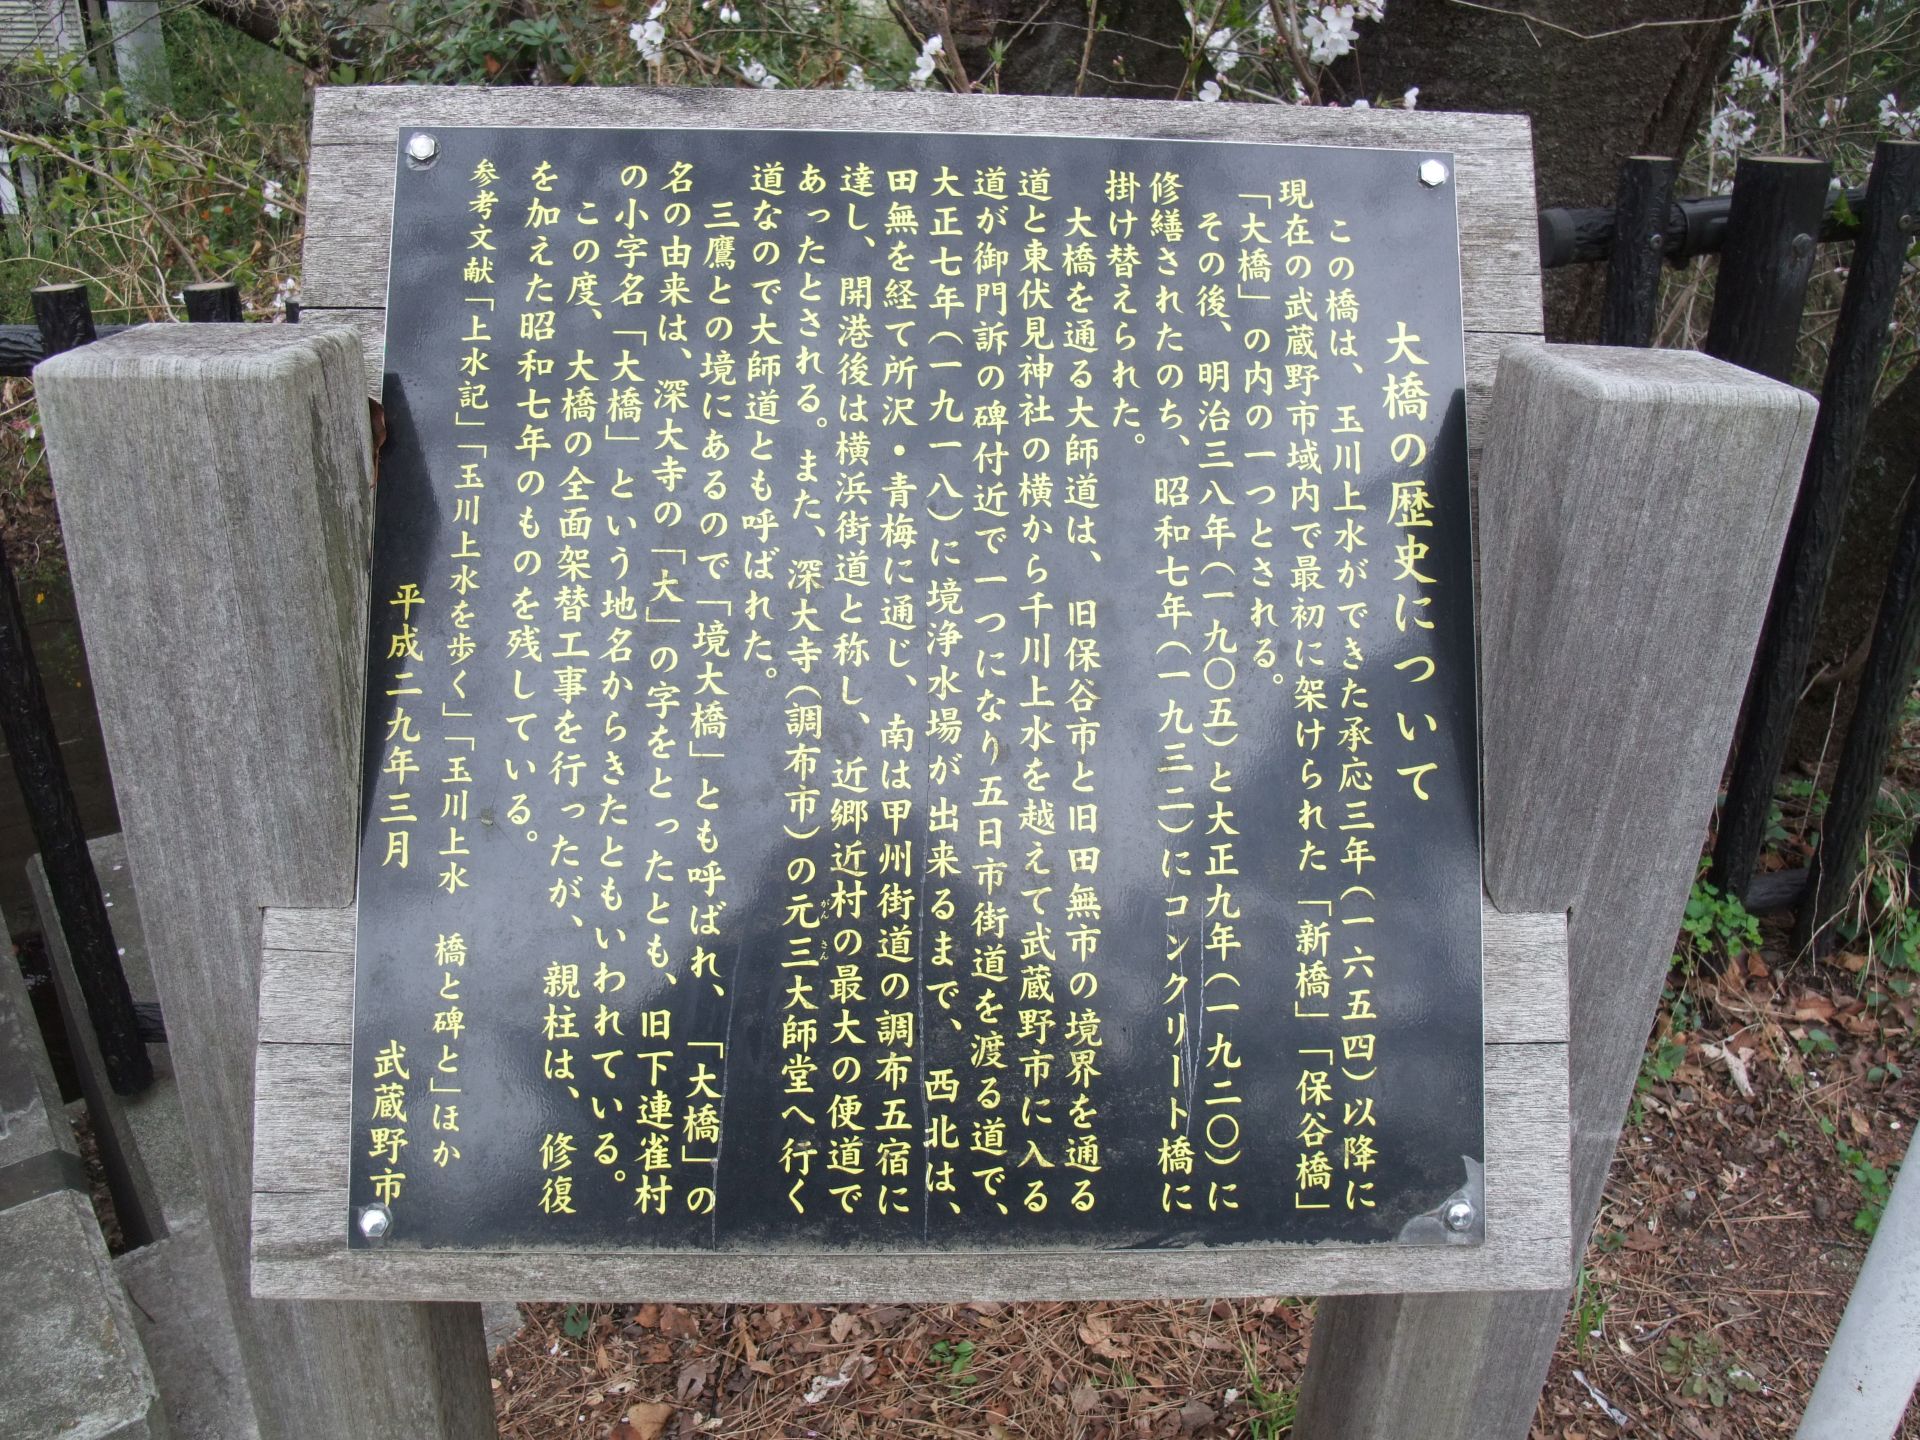 大橋の歴史について
この橋は、玉川上水ができた承応三年(一六五四)以降に
現在の武蔵野市域内で最初に架けられた「新橋」「保谷橋」
「大橋」の内の一つとされる。
その後、明治三八年(一九〇五)と大正九年(一九二〇)に
修繕されたのち、昭和七年(一九三二)にコンクリート橋に
掛け替えられた。
大橋を通る大師道は、旧保谷市と旧田無市の境界を通る
道と東伏見神社の横から千川上水を越えて武蔵野市に入る
道が御門訴の碑付近で一つになり五日市街道を渡る道で、
大正七年(一九一八)に境浄水場が出来るまで、西北は、
田無を経て所沢・青梅に通じ、南は甲州街道の調布五宿に
達し、開港後は横浜街道と称し、近郷近村の最大の便道で
あったとされる。また、深大寺(調布市)の元三大師堂へ行く
がんさん
道なので大師道とも呼ばれた。
三鷹との境にあるので「境大橋」とも呼ばれ、「大橋」の
名の由来は、深大寺の「大」の字をとったとも、旧下連雀村
の小字名「大橋」という地名からきたともいわれている。
この度、大橋の全面架替工事を行ったが、親柱は、修復
を加えた昭和七年のものを残している。
参考文献「上水記」「玉川上水を歩く」「玉川上水 橋と碑と」ほか
平成二九年三月 武蔵野市